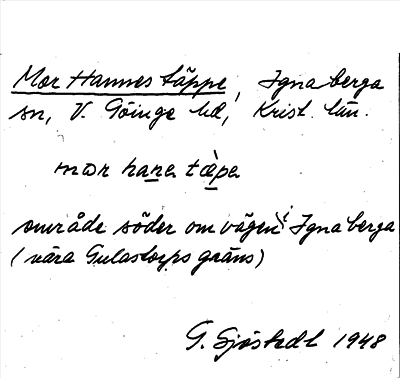 Mor Hannes täppe, Ignaberga
sn, V. Göinge hd, Krist. län.
mor hana tæ̀pa
område söder om vägen i Ignaberga
(nära Gulastorps gräns)
G. Sjöstedt 1948